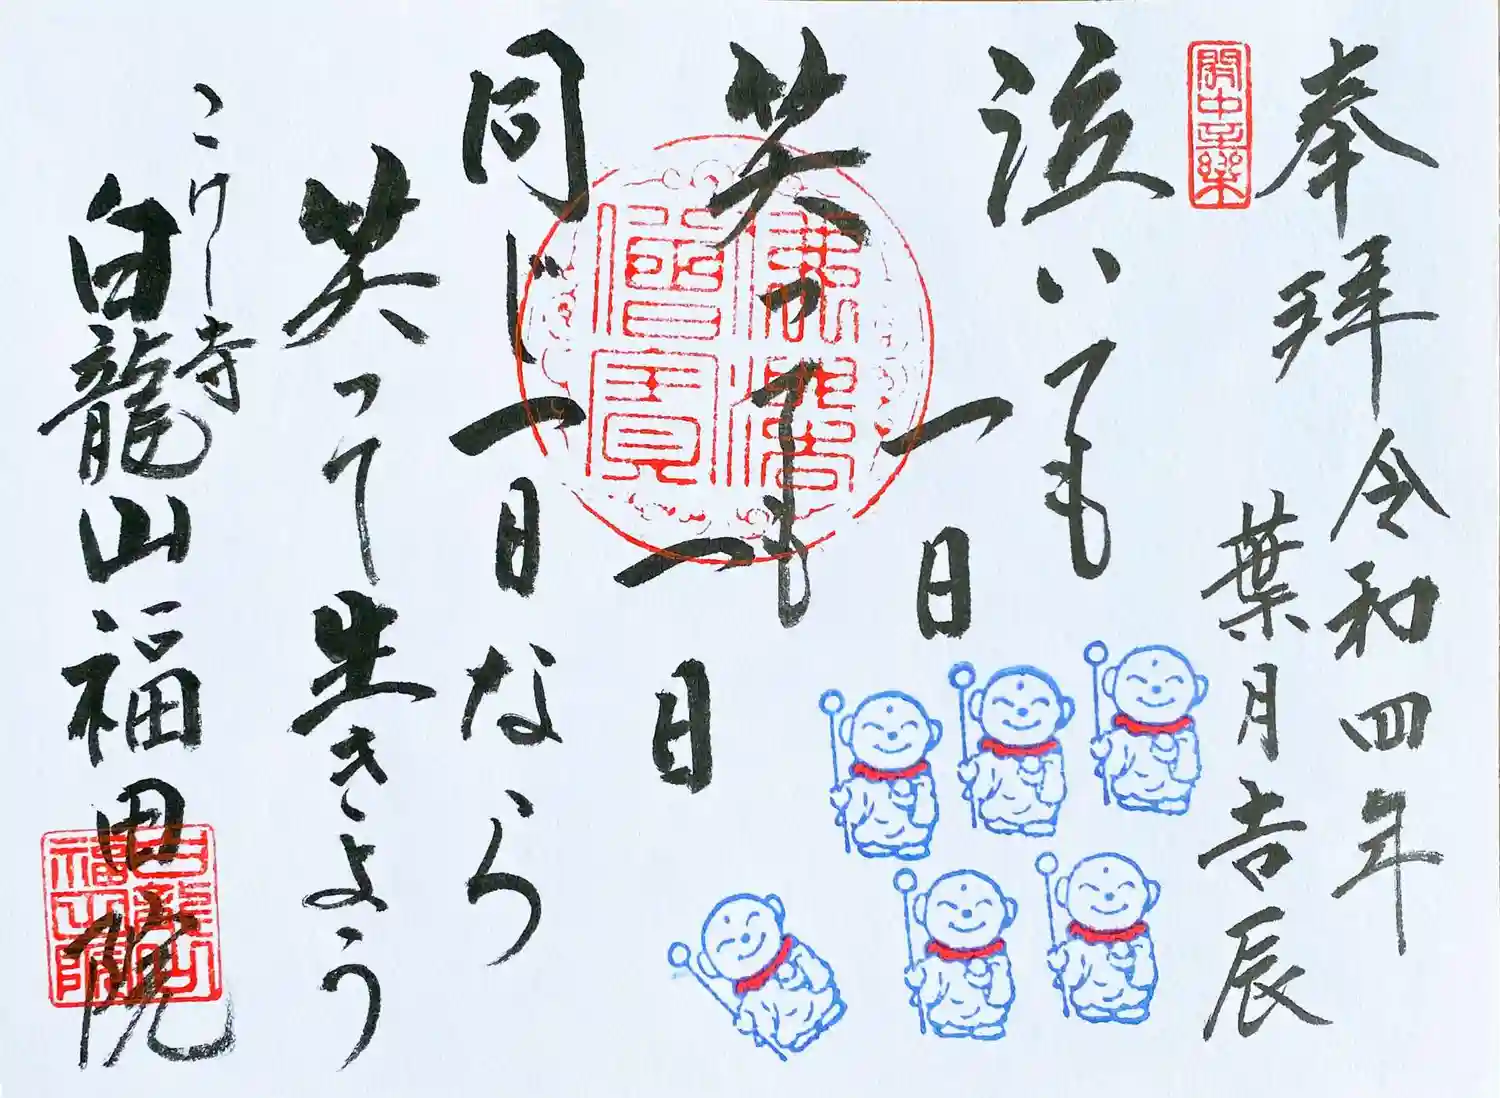 奉拝 令和四年
葉月吉辰
泣いても
一日
笑っても
一日
同じ一日なら
笑って生きよう
こけし寺
白龍山福田院
佛法僧寶
白龍山福田院